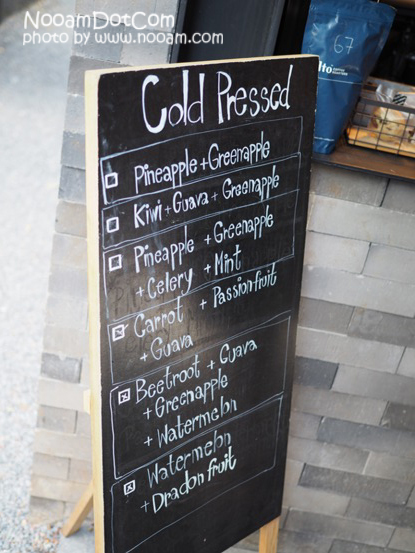 NooamDotCom
photo by www.nooam.com
67
lto
Cold Pressed
Pineapple + Greenapple
Kiwi + Guava + Greenapple
Pineapple + Greenapple
+ Celery + Mint
Carrot + Passionfruit
+ Guava
Beetroot + Guava
+ Greenapple
+ Watermelon
Watermelon
+ Dradon fruit